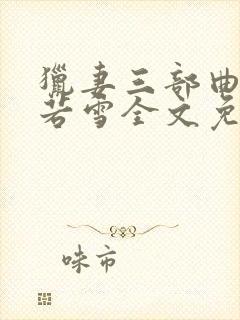 獵妻三部曲
若雪全文免
味市